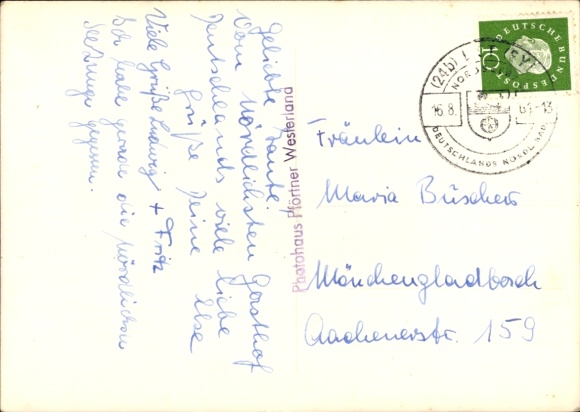 Geliebte Tante!
Vom nördlichsten Gasthof
Deutschlands viele liebe
Grüße Deine Else
Viele Grüße Ludwig + Fritz
Ich habe gerade die nördlichste
gegessen.
Photohaus Pförtner Westerland
DEUTSCHE BUNDESPOST
10
(24b) L
NORDS
16.8. 61-13
DEUTSCHLANDS NÖRDL.
Fräulein
Maria Büschers
Mönchengladbach
Aachenerstr. 159